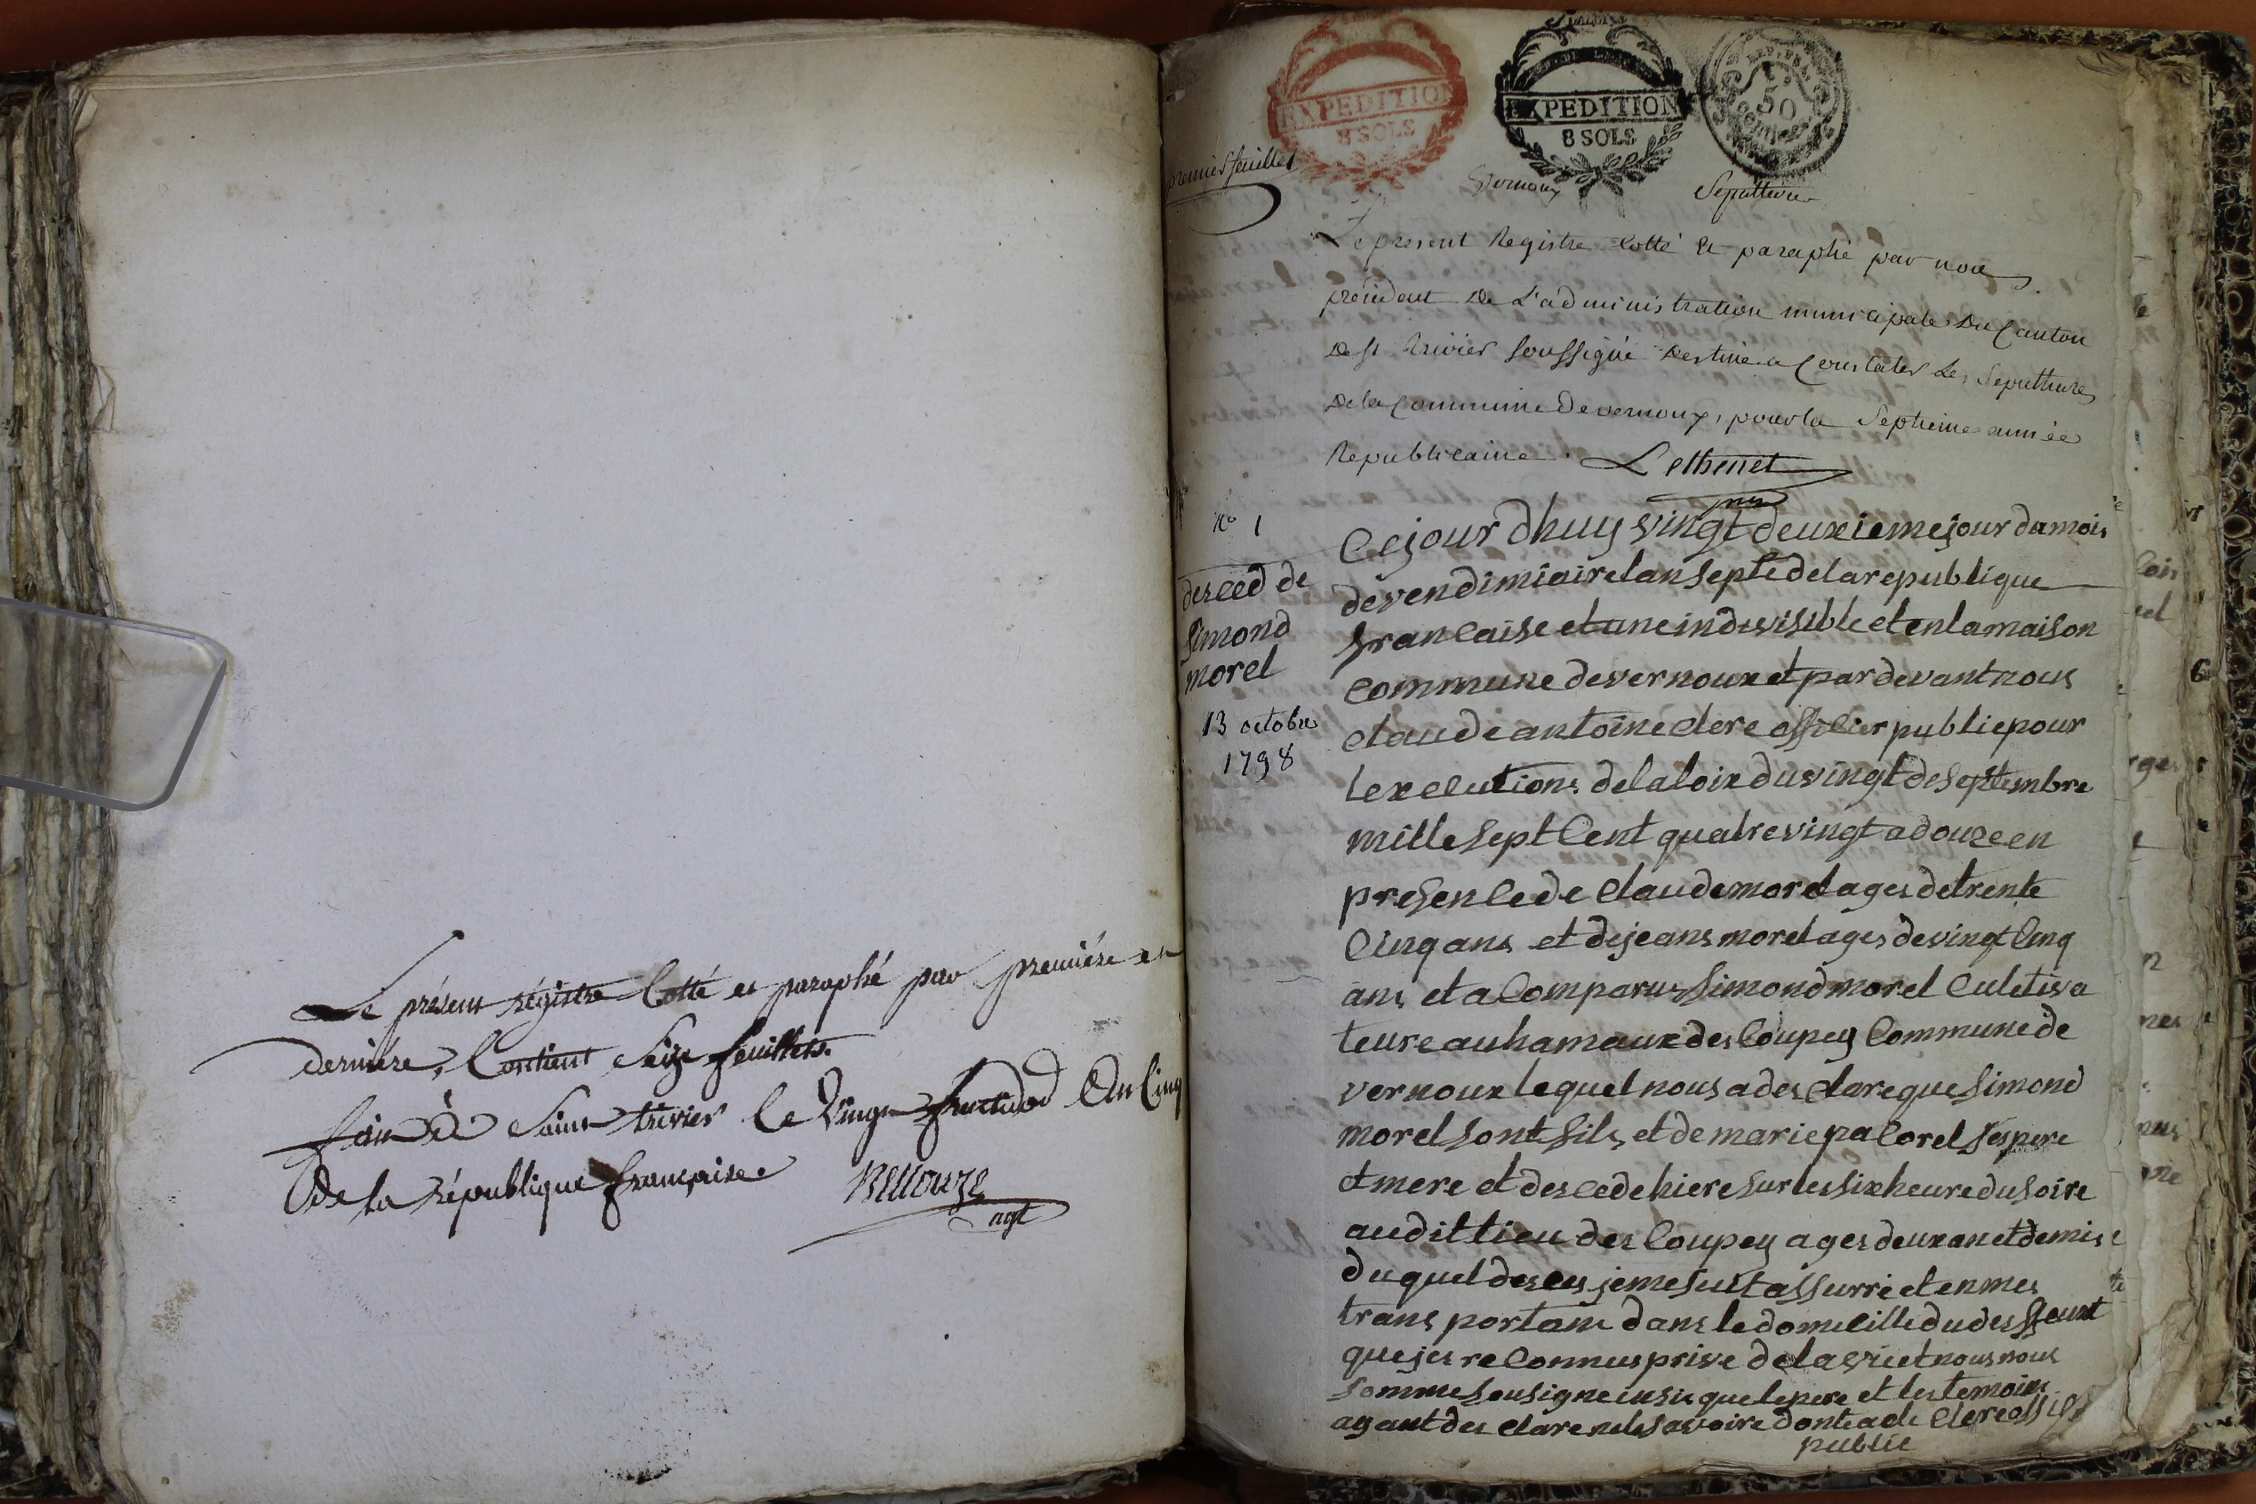 Le présent régistre Cotté et paraphé par première et
dernière, Contient Seize feuillets.
fait à Saint trivier le Vingt fructidor An Cinq
De la République française
agt
EXPEDITION
8 SOLS
EXPEDITION
8 SOLS
50
premier feuillet
Vernoux Sepulture
Le present Registre Cotté et paraphé par nous
président de L'administration municipale du Canton
de St trivier Soussigné destiné a Constater Les Sepulture
de la Commune de vernoux, pour la Septieme année
Republicaine. Lethenet
N° 1
desced de
Simond
morel
13 octobre
1798
Cejour dhuy vingt deuxieme jour du mois
de vendimiaire lan septe de la republique
francaise et une indivisible et en la maison
commune de vernoux et par devant nous
claude antoine clere officier public pour
lexecutions de la loix du vingt de septembre
mille sept Cent quatre vingt a douze en
presence de claude morel ages de trente
Cinq ans et de jeans morel ages de vingt Cinq
ans et a Comparus Simond morel Culetiva
teure au hamaux des Coupey Commune de
vernoux lequel nous a des clare que Simond
morel sont fils et de marie pa Corel ses pere
et mere et descede hiere sur les six heure du soire
audit lieu des Coupey ages deux an et demis
duquel desces je me suit assurré et en mes
trans portant dans le domicille du des funt
que jes reConnus prive de la vie et nous nous
somme sousigne insis que le pere et les temoins
ayant des clare nes savoire dont acte Clere offi
public